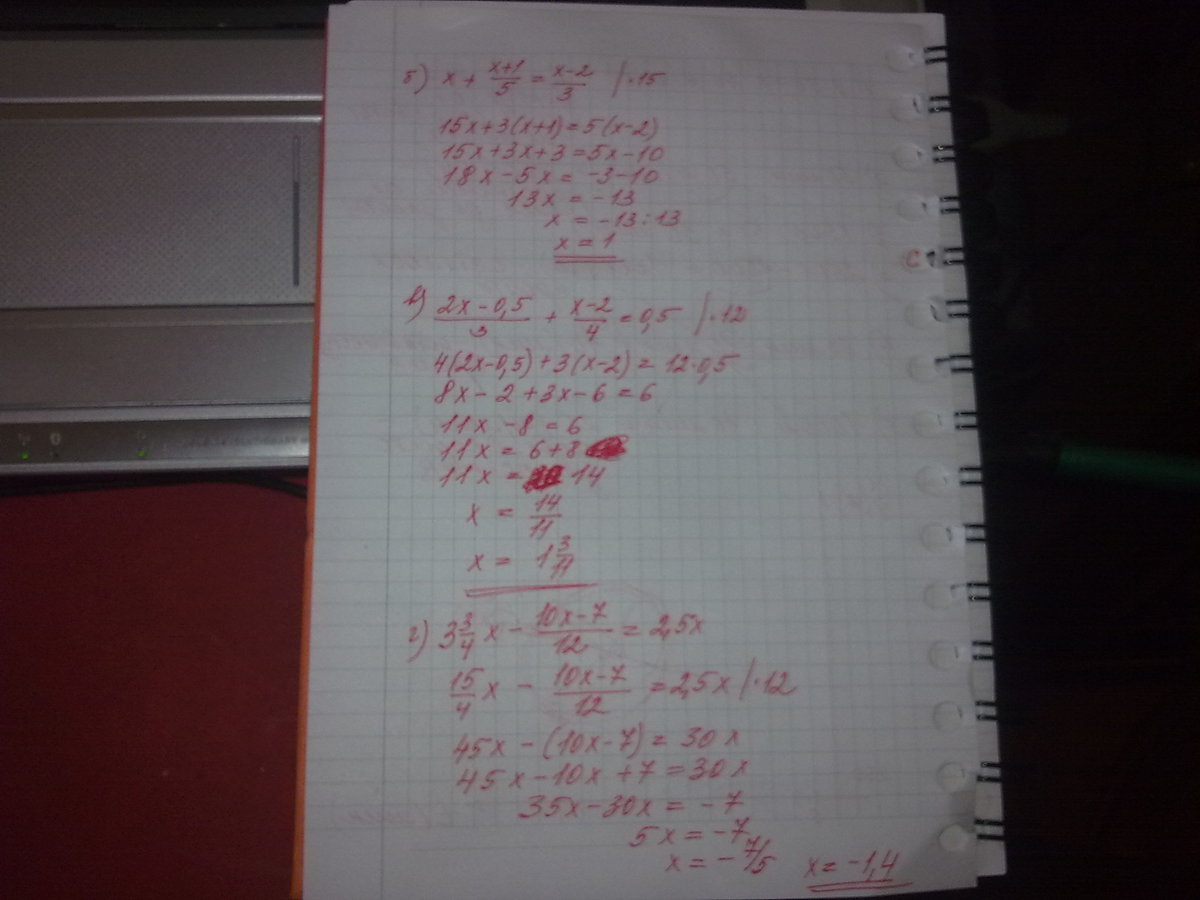 б) x + (x+1)/5 = (x-2)/3 /·15
15x+3(x+1)=5(x-2)
15x+3x+3=5x-10
18x-5x= -3-10
13x = -13
x = -13:13
x = 1
в) (2x-0,5)/3 + (x-2)/4 = 0,5 /·12
4(2x-0,5)+3(x-2)= 12·0,5
8x- 2 +3x-6 =6
11x -8 = 6
11x = 6+8
11x = 14
x = 14/11
x = 1 3/11
г) 3 3/4 x - (10x-7)/12 = 2,5x
15/4 x - (10x-7)/12 = 2,5x /·12
45x -(10x-7)= 30x
45x-10x +7 =30x
35x-30x = -7
5x = -7
x = - 7/5 x= -1,4